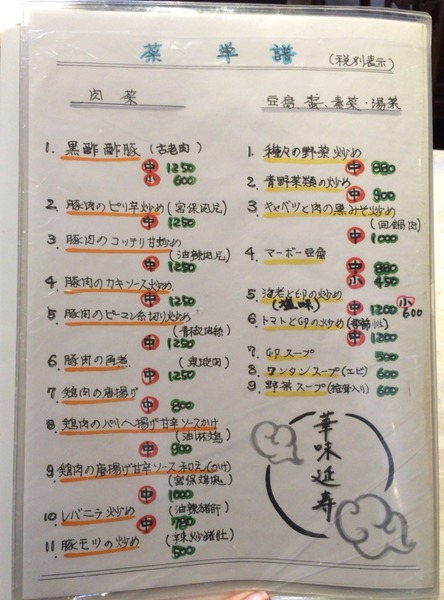 菜単譜
(税別表示)
肉菜
1. 黒酢酢豚 (古老肉)
中 1250
小 600
2. 豚肉のピリ辛炒め (宮保肉片)
中 1250
3. 豚肉のコッテリ甘炒め
(油辣肉片)
中 1250
4. 豚肉のカキソース炒め
中 1250
5. 豚肉のピーマン糸切り炒め
(青椒肉絲)
中 1250
6. 豚肉の角煮 (東坡肉)
中 1250
7. 鶏肉の唐揚げ
中 800
8. 鶏肉のパリパリ揚げ甘辛ソースかけ
(油淋鶏)
中 900
9. 鶏肉の唐揚げ甘辛ソース和え(かけ)
(宮保鶏塊)
中 1000
10. レバニラ炒め (油辣猪肝)
中 780
11. 豚モツの炒め (辛炒猪肚)
500
豆腐、蛋、素菜・湯菜
1. 種々の野菜炒め
中 880
2. 青野菜類の炒め
中 900
3. キャベツと肉の黒みそ炒め
(回鍋肉)
中 1000
4. マーボー豆腐
中 880
小 450
5. 海老と卵の炒め
(塩味) 中 1200 小 600
6. トマトと卵の炒め
中 1200
7. 卵スープ 500
8. ワンタンスープ(エビ) 600
9. 野菜スープ(椎茸入り) 600
華味延寿